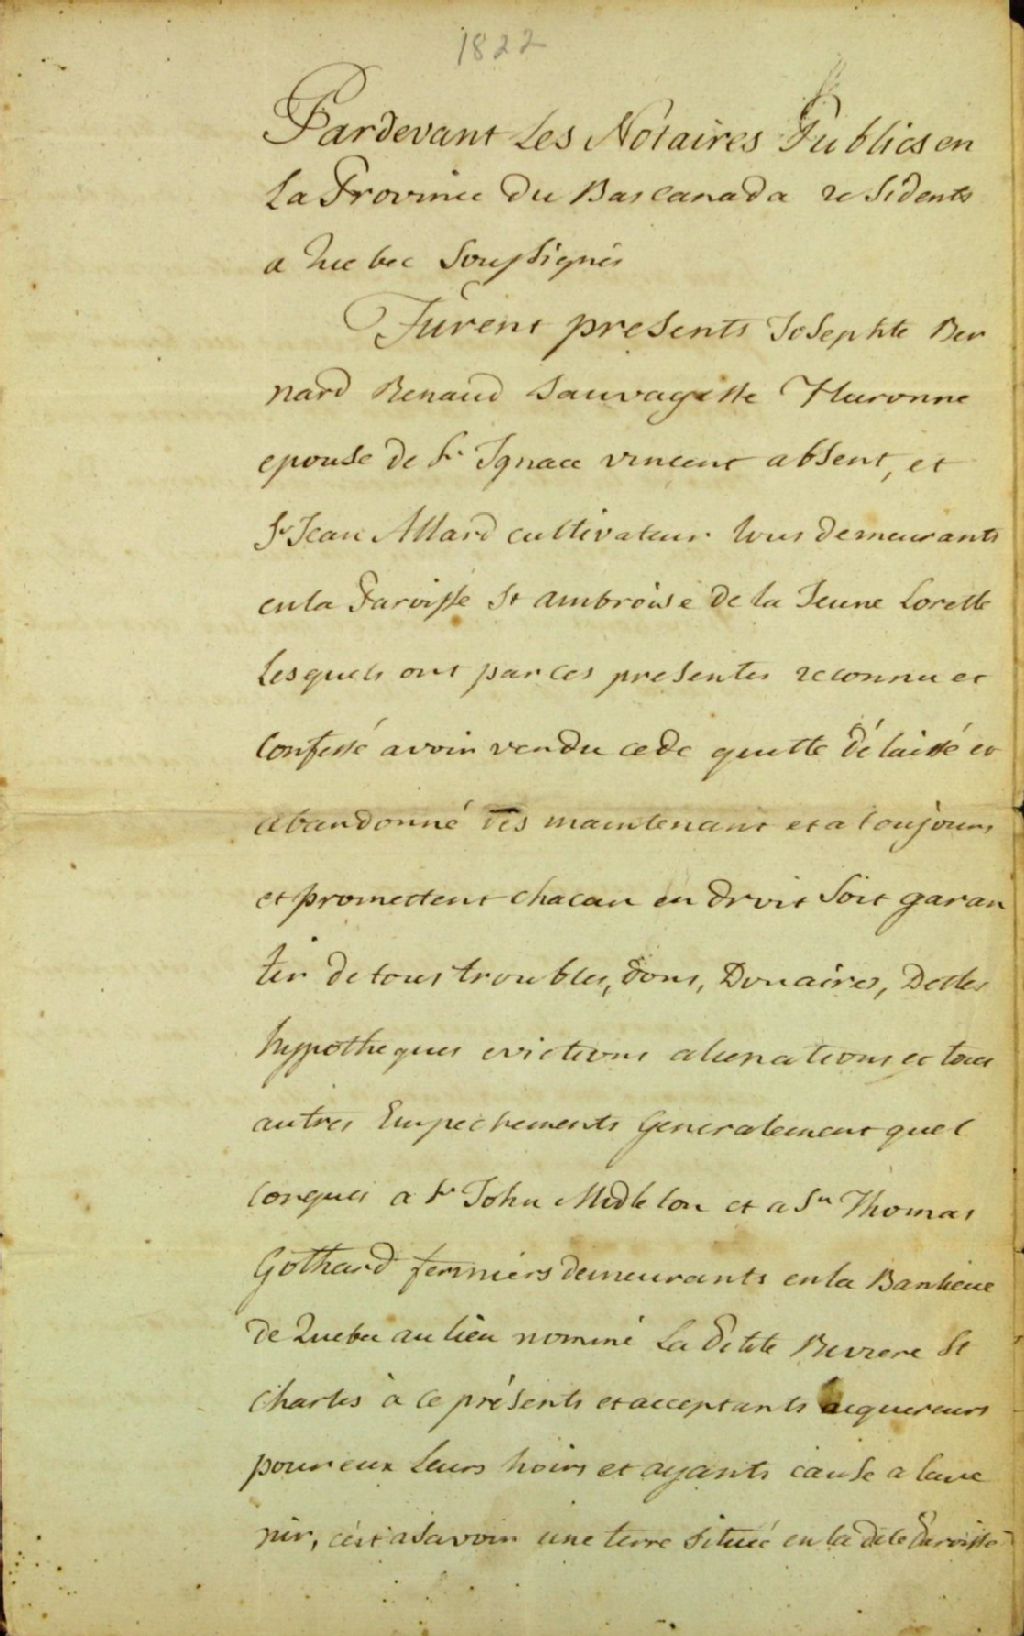 1822
Pardevant Les Notaires Publics en
La Province Du Bascanada residents
a Quebec Soussignés
Furent presents Josephte Ber
nard Renaud Sauvagesse Huronne
epouse de Sr Ignace vincent absent, et
Sr Jean Allard cultivateur tous demeurants
en la Paroisse St ambroise de la Jeune Lorette
Lesquels ont par ces presentes reconnu et
Confessé avoir vendu cede quitte délaissé et
abandonné dès maintenant et a toujours
et promettent chacun en droit Soit garan
tir de tous troubles, dons, Douaires, Dettes
hypotheques evictions alienations et tous
autres Empechements Generalement quel
conques a Sr John Midleton et a Sr Thomas
Gothard fermiers demeurants en la Banlieue
de Quebec au lieu nommé La Petite Riviere St
Charles à ce présents et acceptants acquereurs
pour eux Leurs hoirs et ayants cause a lave
nir, cést a Savoir une terre Situé en la dite Paroisse